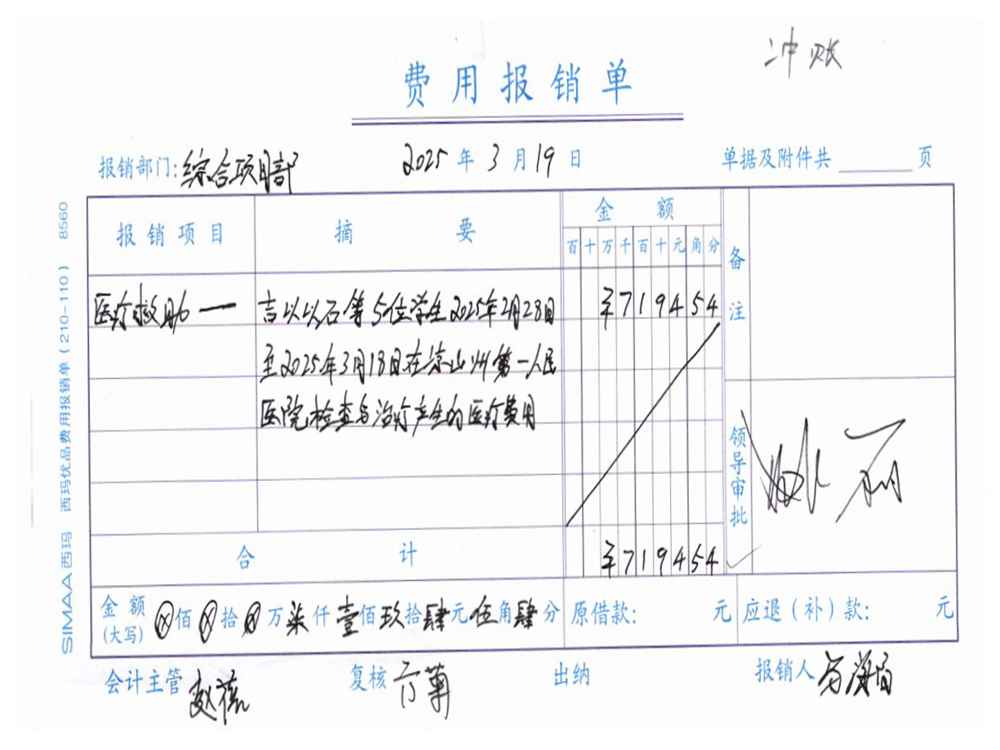 冲账
费用报销单
报销部门:综合项目部 2025年3月19日 单据及附件共 页
报销项目 摘要 金额 备注
百十万千百十元角分
医疗救助一 吉以以石等5位学生2025年2月28日 ¥719454
至2025年3月18日在凉山州第一人民
医院检查与治疗产生的医疗费用
领导审批
合计 ¥719454
金额(大写) ⊗佰⊗拾⊗万柒仟壹佰玖拾肆元伍角肆分 原借款: 元 应退(补)款: 元
会计主管 复核 出纳 报销人
SIMAA西玛 西玛优品费用报销单(210-110) 8560